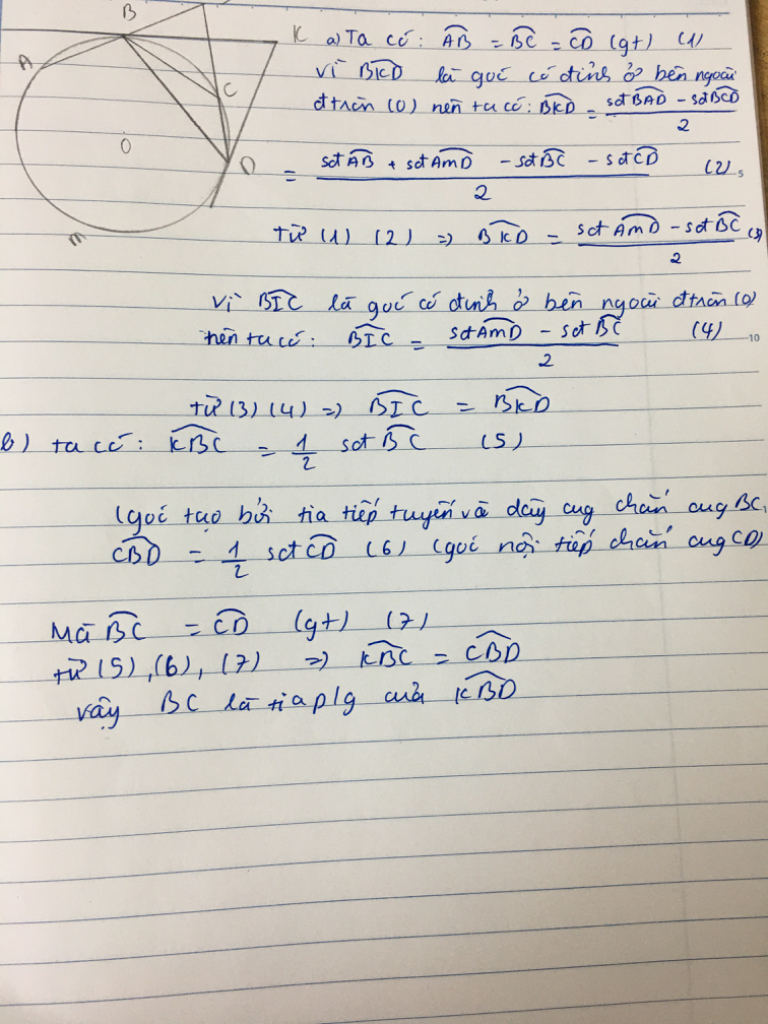 B
K
A
C
O
D
m
a) Ta có: A͡B = B͡C = C͡D (gt) (1)
Vì B̂KD là góc có đỉnh ở bên ngoài
đtròn (O) nên ta có: B̂KD = (sđB͡AD - sđB͡CD) / 2
= (sđA͡B + sđA͡mD - sđB͡C - sđC͡D) / 2 (2)
5
Từ (1) (2) => B̂KD = (sđA͡mD - sđB͡C) / 2 (3)
Vì B̂IC là góc có đỉnh ở bên ngoài đtròn (O)
nên ta có: B̂IC = (sđA͡mD - sđB͡C) / 2 (4)
10
từ (3) (4) => B̂IC = B̂KD
b) ta có: K̂BC = 1/2 sđ B͡C (5)
(góc tạo bởi tia tiếp tuyến và dây cung chắn cung BC,
ĈBD = 1/2 sđ C͡D (6) (góc nội tiếp chắn cung CD)
Mà B͡C = C͡D (gt) (7)
từ (5), (6), (7) => K̂BC = ĈBD
vậy BC là tia p/g của K̂BD